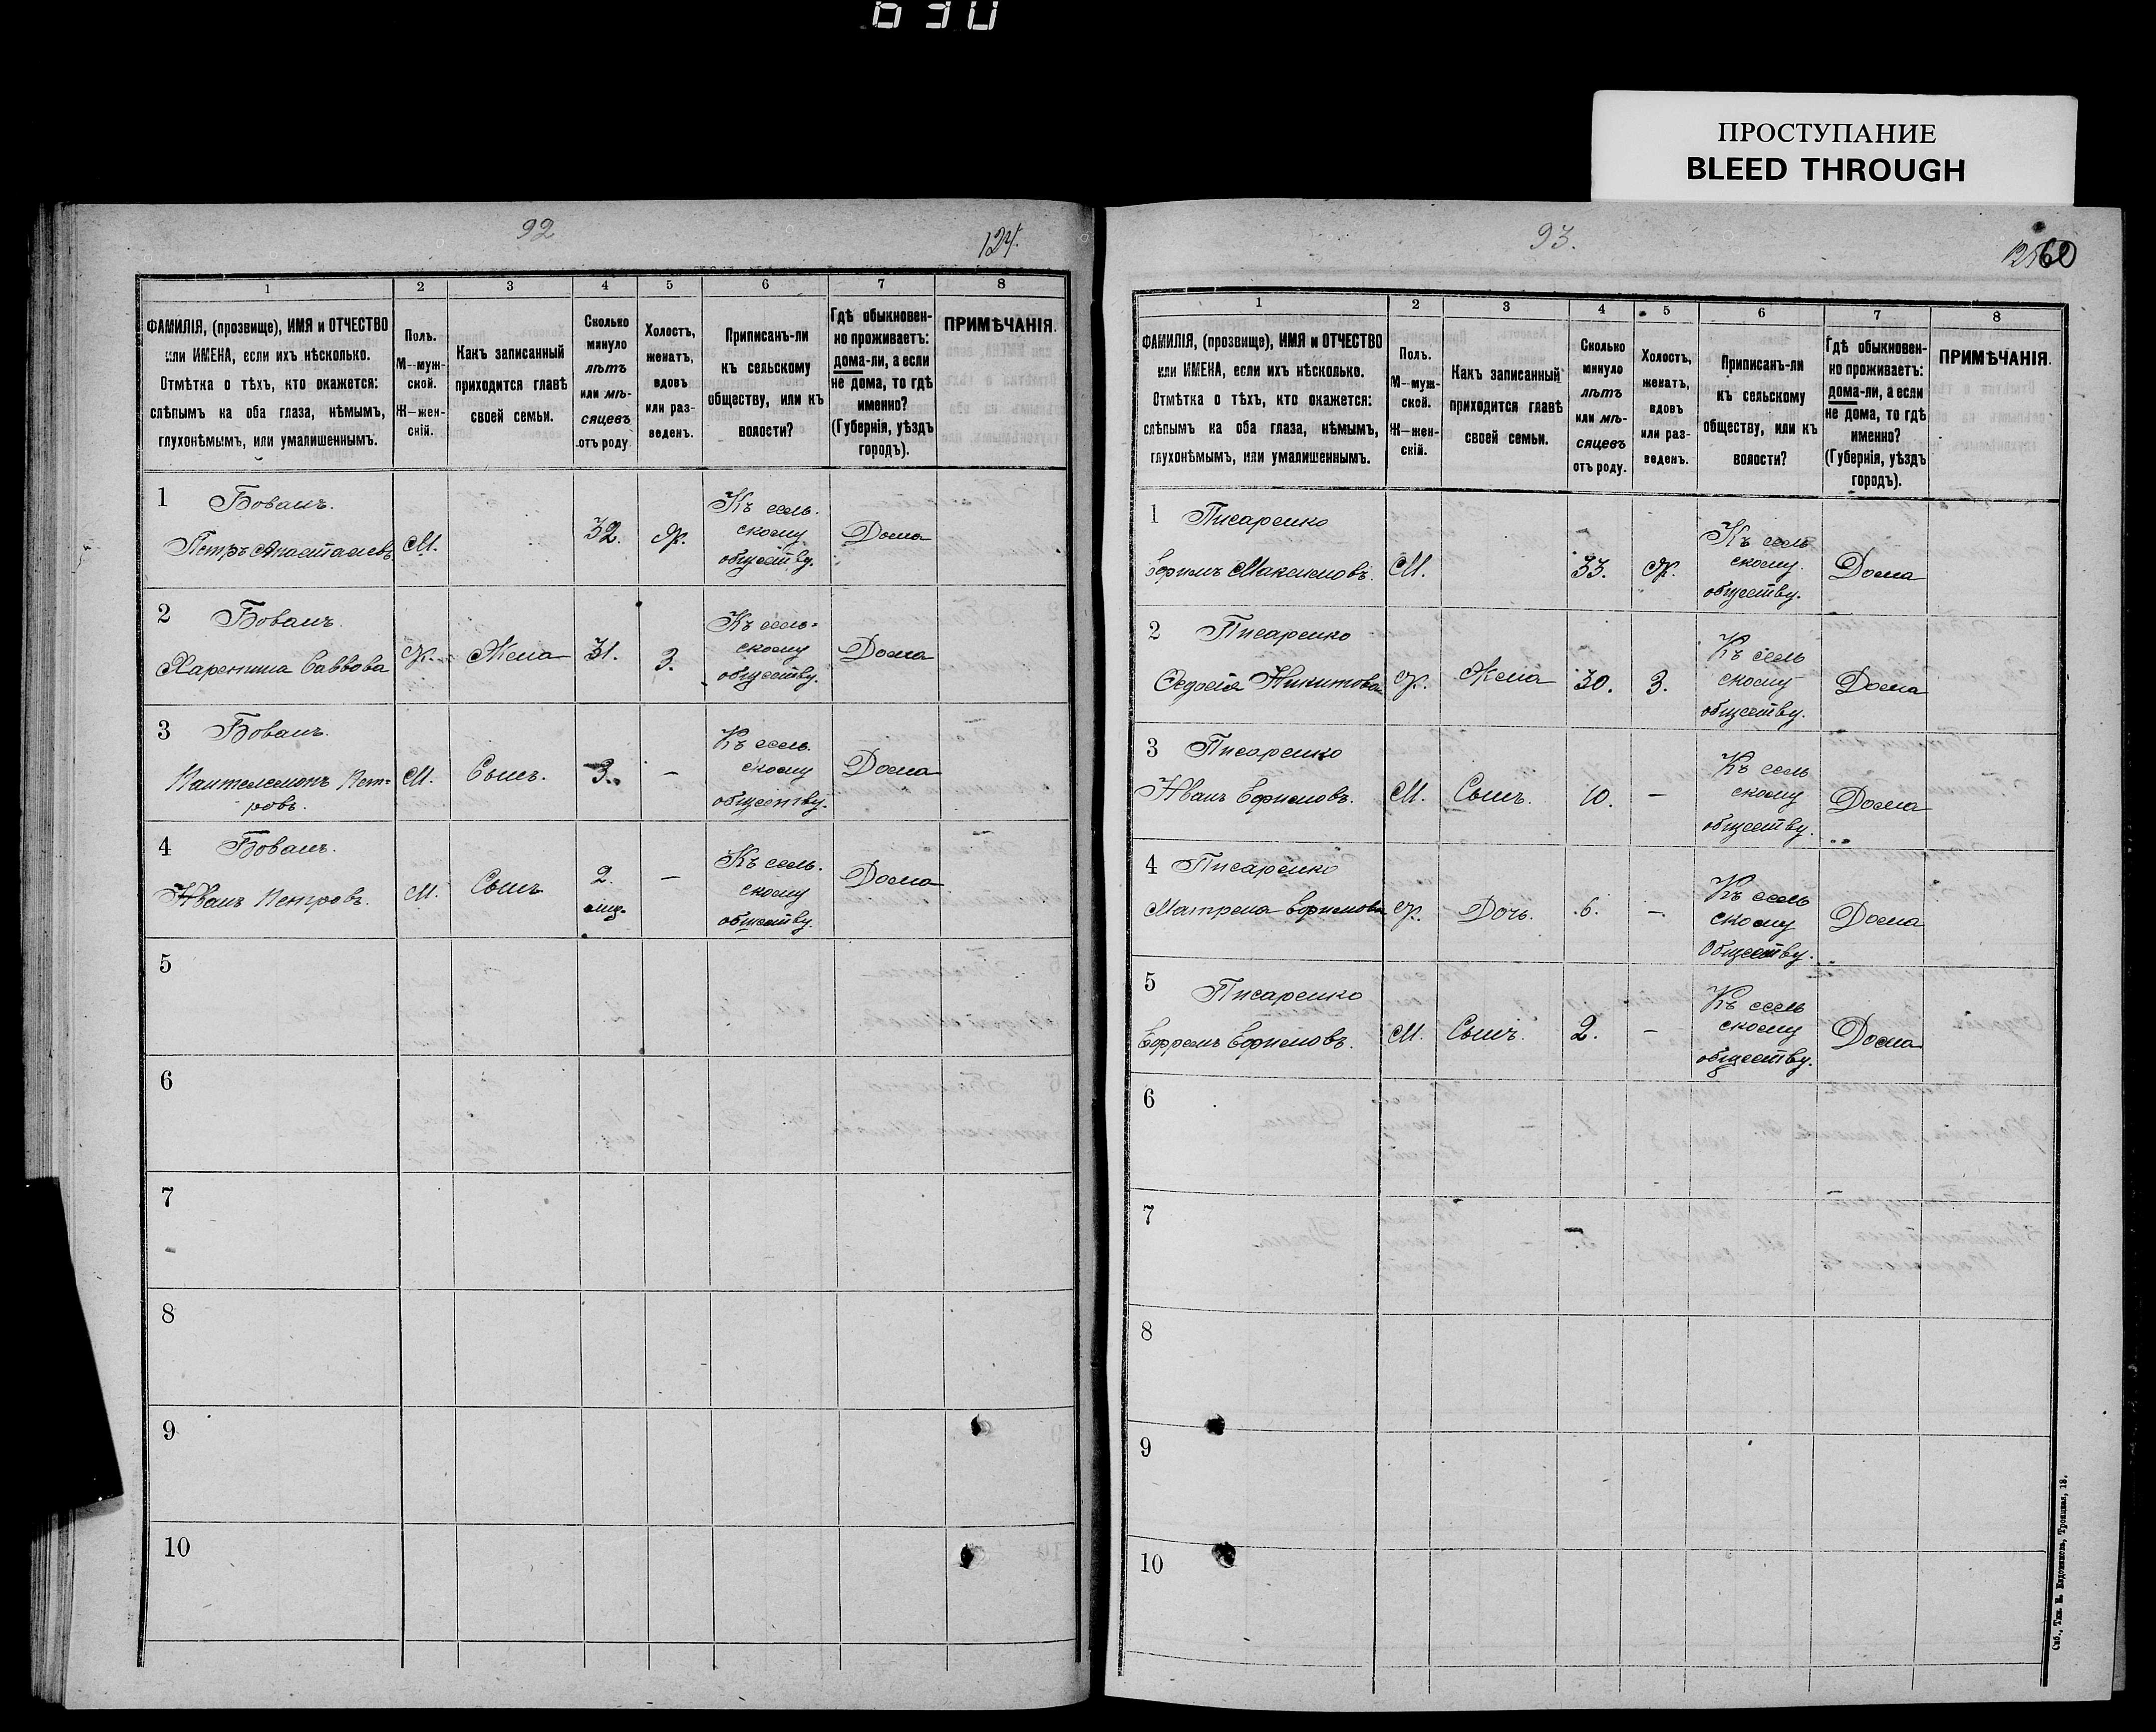 630
ПРОСТУПАНИЕ
BLEED THROUGH
92
124.
1 2 3 4 5 6 7 8
ФАМИЛІЯ, (прозвище), ИМЯ и ОТЧЕСТВО
или ИМЕНА, если ихъ нѣсколько.
Отмѣтка о тѣхъ, кто окажется:
слѣпымъ на оба глаза, нѣмымъ,
глухонѣмымъ, или умалишеннымъ.
Полъ.
М—муж-
ской.
Ж—жен-
скій.
Какъ записанный
приходится главѣ
своей семьи.
Сколько
минуло
лѣтъ
или мѣ-
сяцевъ
отъ роду.
Холостъ,
женатъ,
вдовъ
или раз-
веденъ.
Приписанъ-ли
къ сельскому
обществу, или къ
волости?
Гдѣ обыкновен-
но проживаетъ:
дома-ли, а если
не дома, то гдѣ
именно?
(Губернія, уѣздъ
городъ).
ПРИМѢЧАНІЯ.
1 Бованъ.
Петръ Анастасіевъ
М.
32.
Ж.
Къ сель.
скому
обществу.
Дома
2 Бованъ.
Харетина Саввова
Ж.
Жена
31.
З.
Къ сель-
скому
обществу.
Дома
3 Бованъ.
Пантелемонъ Пет-
ровъ.
М.
Сынъ.
3.
—
Къ сель.
скому
обществу.
Дома
4 Бованъ.
Иванъ Петровъ.
М.
Сынъ
2.
мц.
—
Къ сель.
скому
обществу.
Дома
5
6
7
8
9
10
93.
60
1 2 3 4 5 6 7 8
ФАМИЛІЯ, (прозвище), ИМЯ и ОТЧЕСТВО
или ИМЕНА, если ихъ нѣсколько.
Отмѣтка о тѣхъ, кто окажется:
слѣпымъ на оба глаза, нѣмымъ,
глухонѣмымъ, или умалишеннымъ.
Полъ.
М—муж-
ской.
Ж—жен-
скій.
Какъ записанный
приходится главѣ
своей семьи.
Сколько
минуло
лѣтъ
или мѣ-
сяцевъ
отъ роду.
Холостъ,
женатъ,
вдовъ
или раз-
веденъ.
Приписанъ-ли
къ сельскому
обществу, или къ
волости?
Гдѣ обыкновен-
но проживаетъ:
дома-ли, а если
не дома, то гдѣ
именно?
(Губернія, уѣздъ
городъ).
ПРИМѢЧАНІЯ.
1 Писаренко
Ефимъ Максимовъ.
М.
33.
Ж.
Къ сель
скому.
обществу.
Дома
2 Писаренко
Федосія Никитова
Ж.
Жена
30.
З.
Къ сель
скому
обществу.
Дома
3 Писаренко
Иванъ Ефимовъ.
М.
Сынъ.
10.
—
Къ сель
скому
обществу.
Дома
4 Писаренко
Матрена Ефимова
Ж.
Дочь.
6.
—
Къ сель
скому
Обществу.
Дома
5 Писаренко
Ефремъ Ефимовъ.
М.
Сынъ.
2.
—
Къ сель
скому
обществу.
Дома
6
7
8
9
10
Спб., Тип. Е. Евдокимова, Троицкая, 18.